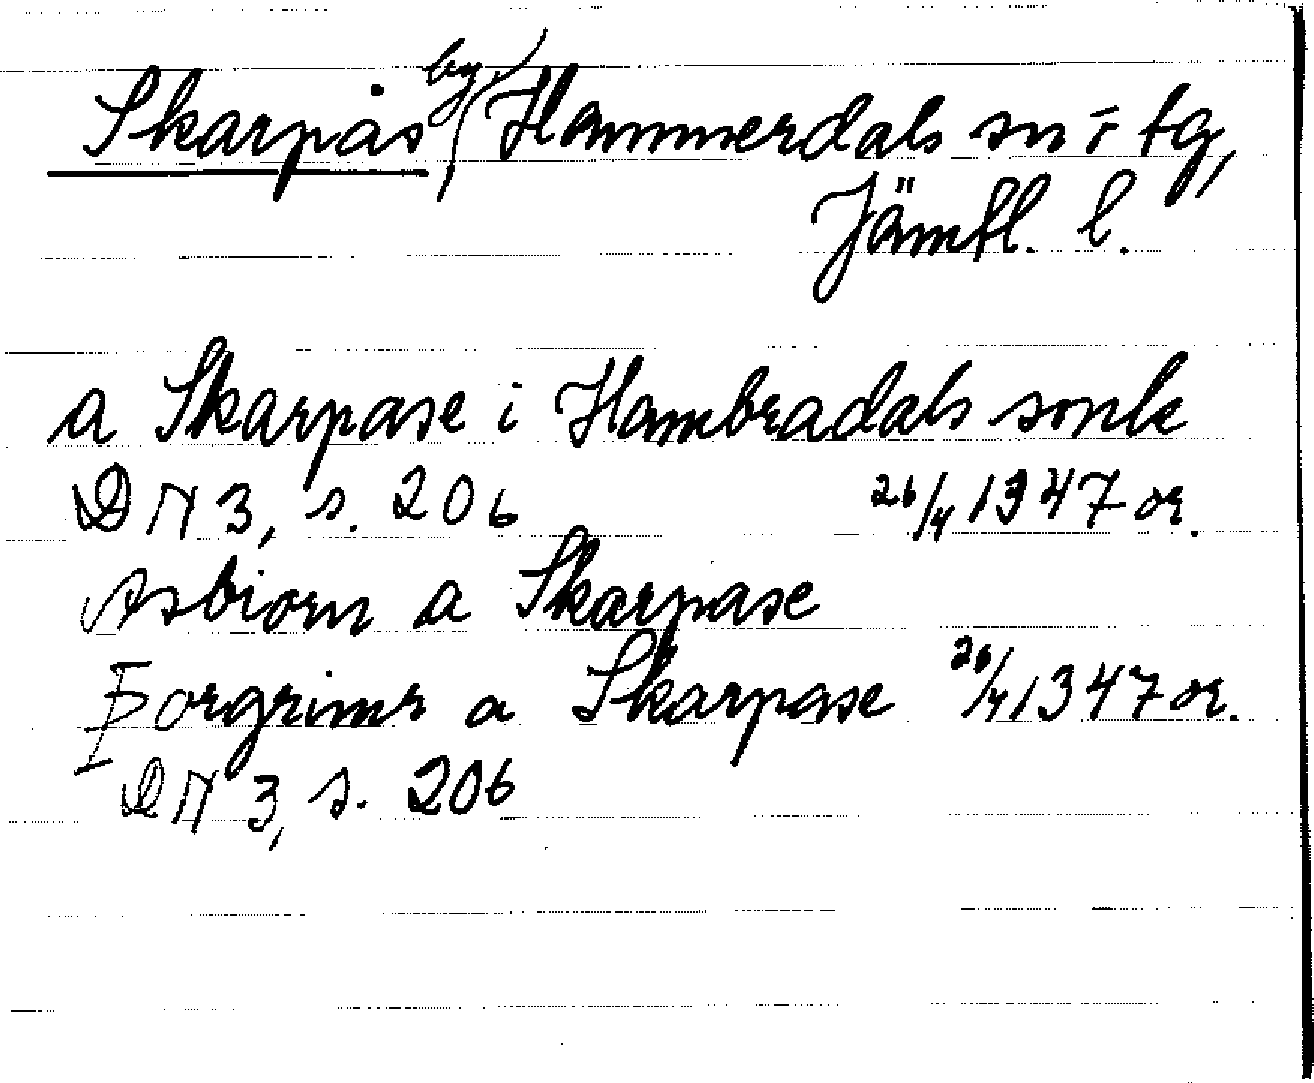 Skarpås by, Hammerdals sn o tg,
Jämtl. l.
a Skarpase i Hambradals sonk
DN 3, s. 206 26/4 1347 or.
Asbiorn a Skarpase
Þorgrimr a Skarpase 26/4 1347 or.
DN 3, s. 206